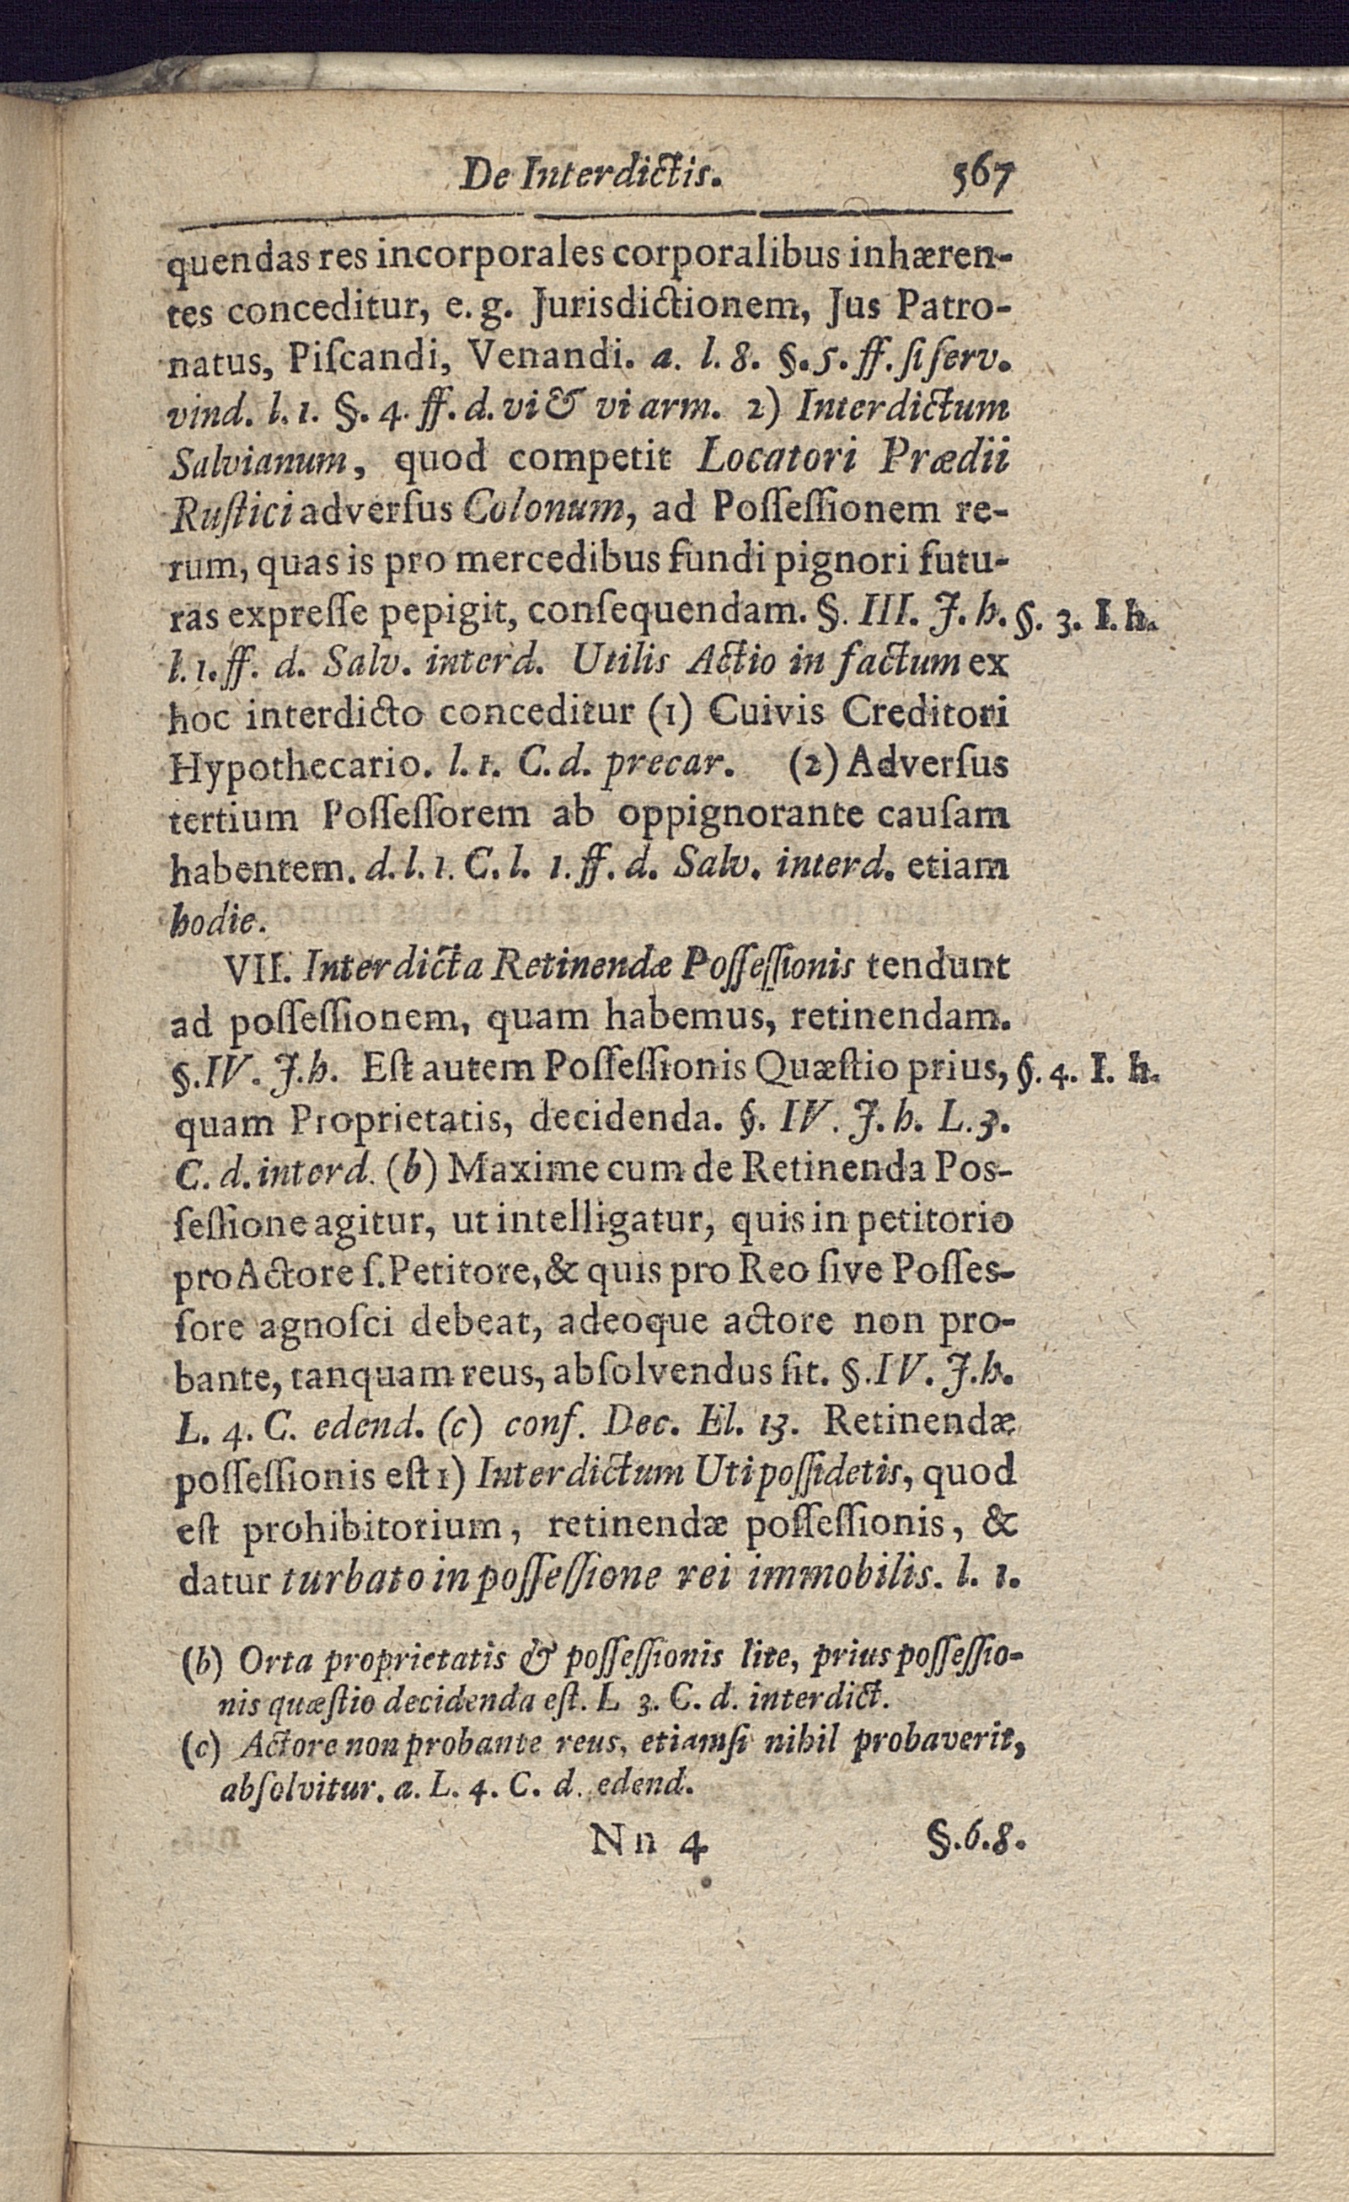 De Interdictis. 567
quendas res incorporales corporalibus inhæren-
tes conceditur, e. g. Jurisdictionem, Jus Patro-
natus, Piſcandi, Venandi. a. l. 8. §. 5. ff. ſi ſerv.
vind. l. 1. §. 4. ff. d. vi & vi arm. 2) Interdictum
Salvianum, quod competit Locatori Prædii
Ruſtici adverſus Colonum, ad Poſſeſſionem re-
rum, quas is pro mercedibus fundi pignori futu-
ras expreſſe pepigit, conſequendam. §. III. J. h. §. 3. I. h.
l. 1. ff. d. Salv. interd. Utilis Actio in factum ex
hoc interdicto conceditur (1) Cuivis Creditori
Hypothecario. l. 1. C. d. precar. (2) Adverſus
tertium Poſſeſſorem ab oppignorante cauſam
habentem. d. l. 1. C. l. 1. ff. d. Salv. interd. etiam
hodie.
VII. Interdicta Retinendæ Poſſeſſionis tendunt
ad poſſeſſionem, quam habemus, retinendam.
§. IV. J. h. Eſt autem Poſſeſſionis Quæſtio prius, §. 4. I. h.
quam Proprietatis, decidenda. §. IV. J. h. L. 3.
C. d. interd. (b) Maxime cum de Retinenda Poſ-
ſeſſione agitur, ut intelligatur, quis in petitorio
pro Actore ſ. Petitore, & quis pro Reo ſive Poſſeſ-
ſore agnoſci debeat, adeoque actore non pro-
bante, tanquam reus, abſolvendus ſit. §. IV. J. h.
L. 4. C. edend. (c) conf. Dec. El. 13. Retinendæ
poſſeſſionis eſt 1) Interdictum Uti poſſidetis, quod
eſt prohibitorium, retinendæ poſſeſſionis, &
datur turbato in poſſeſſione rei immobilis. l. 1.
(b) Orta proprietatis & poſſeſſionis lite, prius poſſeſſio-
nis quæſtio decidenda eſt. L 3. C. d. interdict.
(c) Actore non probante reus, etiamſi nihil probaverit,
abſolvitur. a. L. 4. C. d. edend.
Nn 4 §. 6. 8.